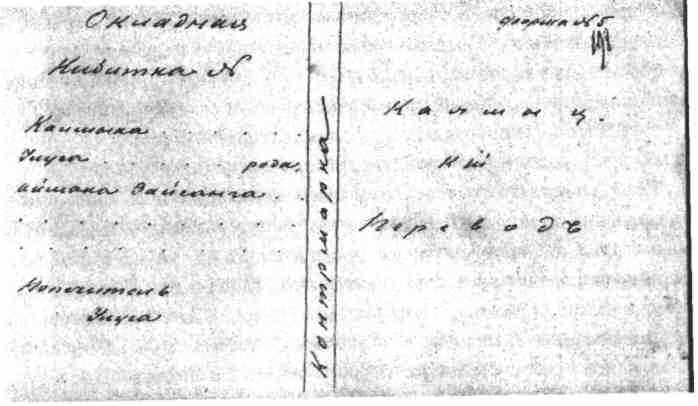 Окладная
Кибитка №
Калмыка
Улуса рода,
аймака Зайсанга
Попечитель
Улуса
Контрмарка
форма № 5
Калмыц.
кій
Переводъ